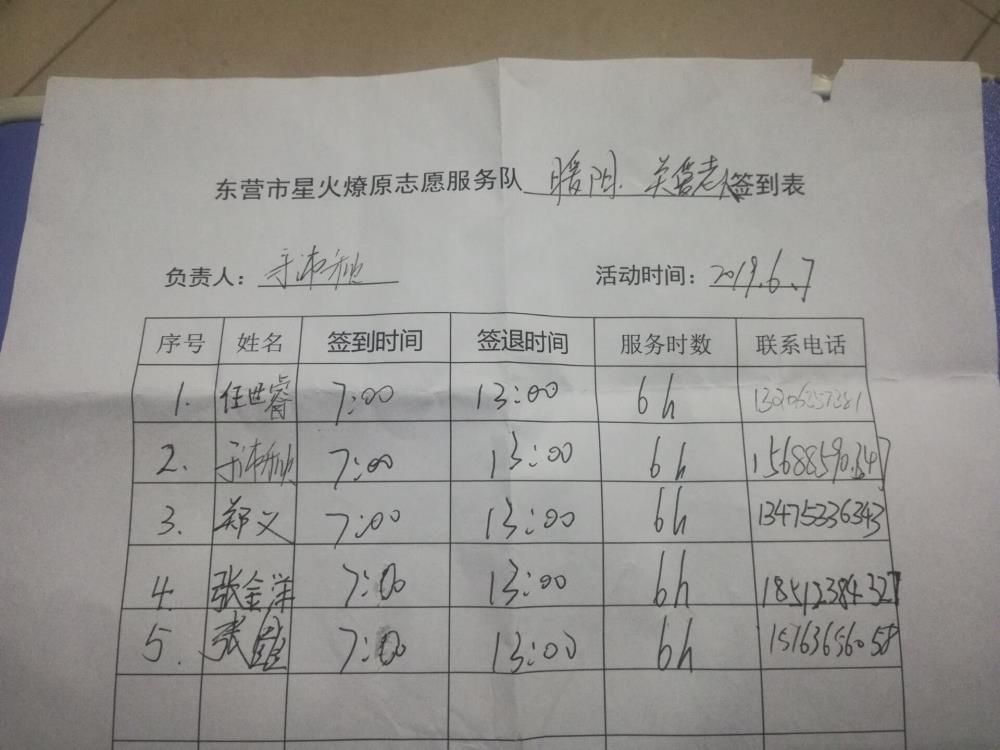 东营市星火燎原志愿服务队 暖阳 关爱老人 签到表
负责人： 活动时间：2019.6.7
序号 姓名 签到时间 签退时间 服务时数 联系电话
1. 任世睿 7:00 13:00 6h 13206357381
2. 7:00 13:00 6h
3. 郑义 7:00 13:00 6h 13475336343
4. 张金洋 7:00 13:00 6h 18512384327
5. 张 7:00 13:00 6h 15763656058